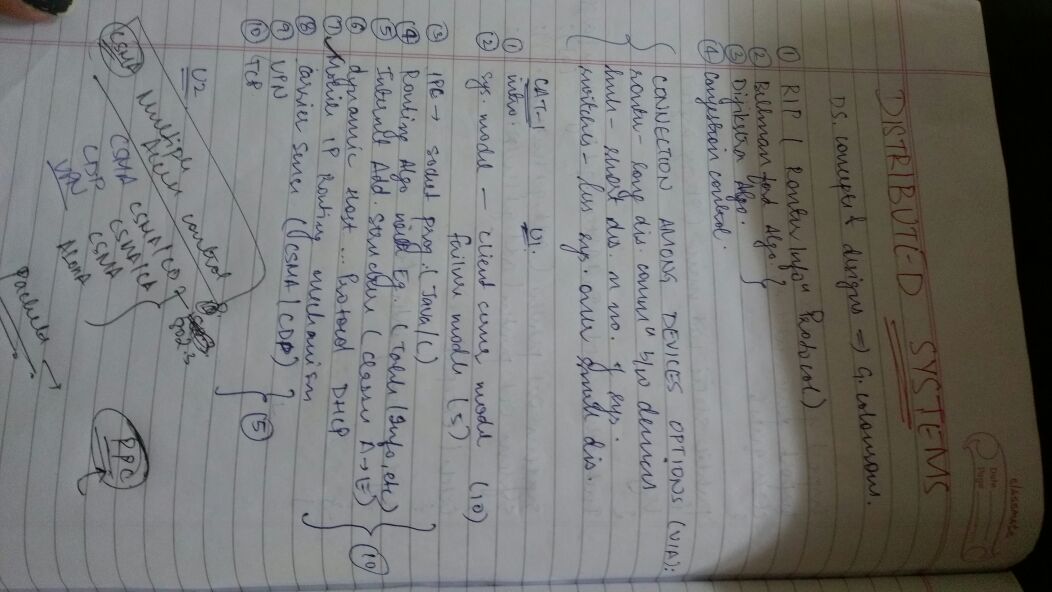 classmate
Date
Page
DISTRIBUTED SYSTEMS
DS. concept & designs => G. colorious.
① RIP ( Router Infoⁿ Protocol)
② Bellman ford Algo
③ Dijkstra Algo.
④ Congestion control.
CONNECTION AMONG DEVICES OPTIONS (VIA):
router - long dis. communⁿ b/w devices
hub - short dis. n no. of sys.
switches - less sys. over small dis.
CAT-1 U1.
① intro.
② sys. model - client server model (10)
failure model (5)
③ IPC → socket prog. (Java/C)
④ Routing Algo Eg. (Table, Info, etc)
⑤ Internet Add. structure (classes A→E)
⑥ dynamic Host ... Protocol DHCP
⑦ Mobile IP Routing mechanism
⑧ carrier sense (CSMA/CD)
⑨ VPN
⑩ TCP
⑩
⑤
U2
CSMA
Multiple
Access control
CSMA CSMA/CD
CDP CSMA/CA
VPN CSMA
ALOHA
packets →
PPC